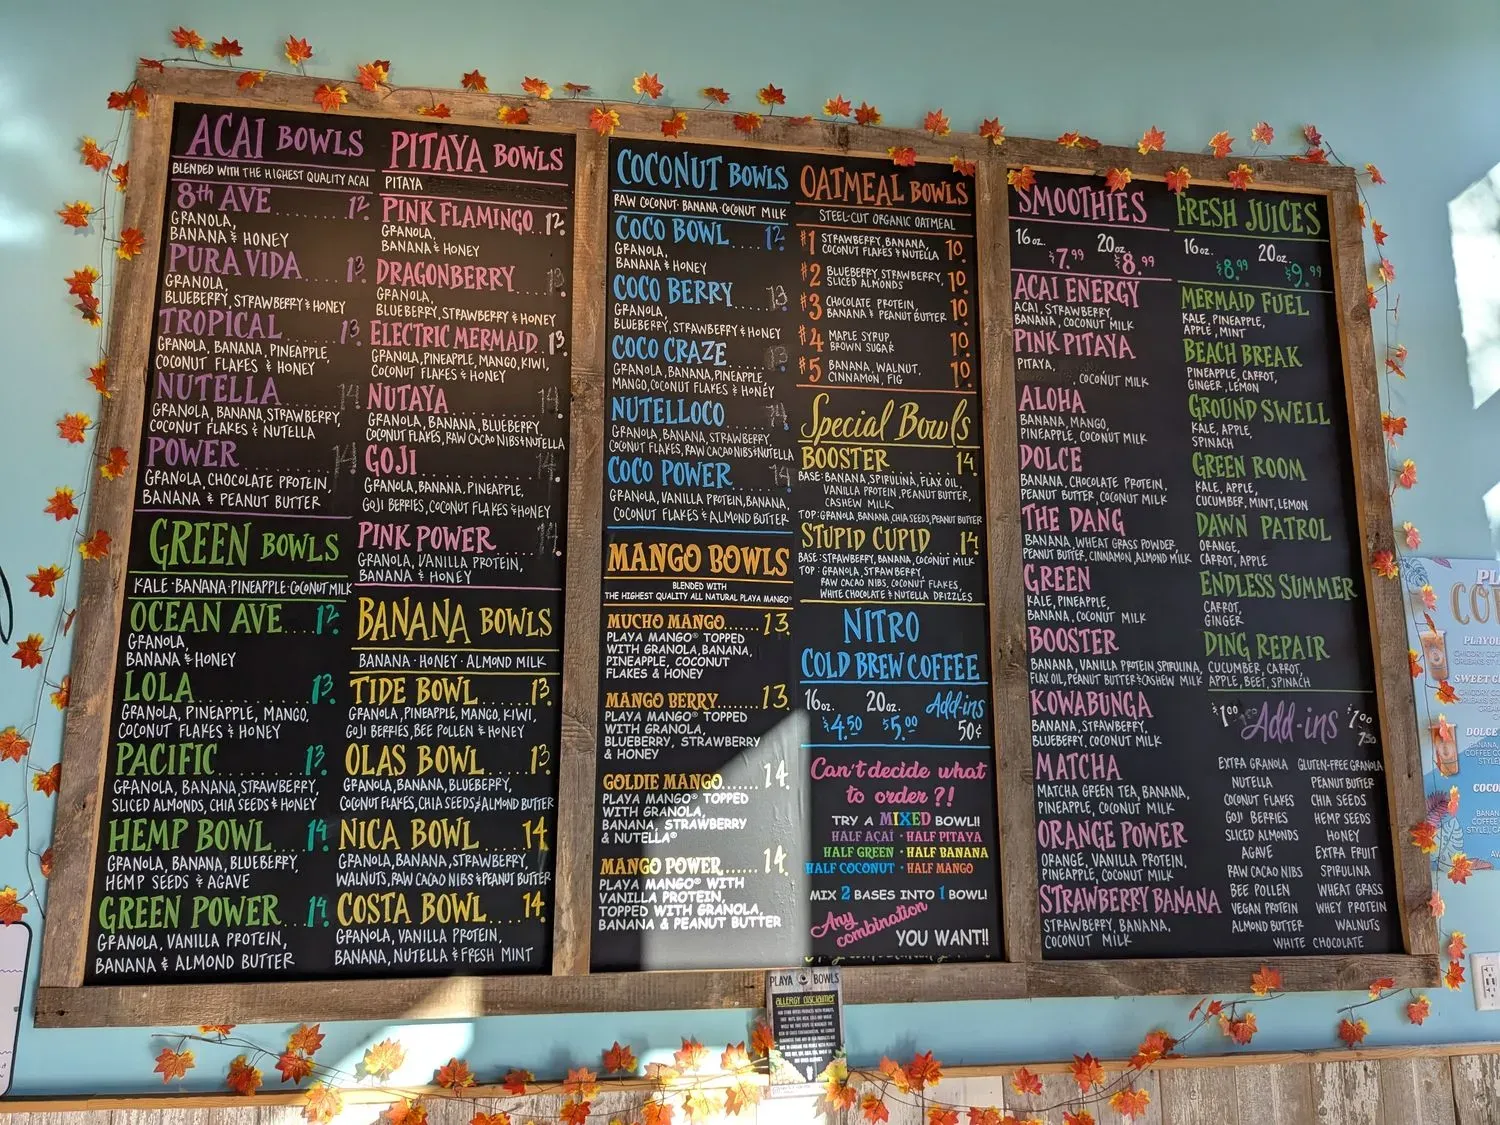 ACAI BOWLS
BLENDED WITH THE HIGHEST QUALITY ACAI
8th AVE........12.
GRANOLA,
BANANA & HONEY
PURA VIDA.....13.
GRANOLA,
BLUEBERRY, STRAWBERRY & HONEY
TROPICAL.......13.
GRANOLA, BANANA, PINEAPPLE,
COCONUT FLAKES & HONEY
NUTELLA........14.
GRANOLA, BANANA, STRAWBERRY,
COCONUT FLAKES & NUTELLA
POWER..........14.
GRANOLA, CHOCOLATE PROTEIN,
BANANA & PEANUT BUTTER
GREEN BOWLS
KALE·BANANA·PINEAPPLE·COCONUT MILK
OCEAN AVE....12.
GRANOLA,
BANANA & HONEY
LOLA............13.
GRANOLA, PINEAPPLE, MANGO,
COCONUT FLAKES & HONEY
PACIFIC.........13.
GRANOLA, BANANA, STRAWBERRY,
SLICED ALMONDS, CHIA SEEDS & HONEY
HEMP BOWL....14.
GRANOLA, BANANA, BLUEBERRY,
HEMP SEEDS & AGAVE
GREEN POWER...14.
GRANOLA, VANILLA PROTEIN,
BANANA & ALMOND BUTTER
PITAYA BOWLS
PITAYA
PINK FLAMINGO..12.
GRANOLA,
BANANA & HONEY
DRAGONBERRY....13.
GRANOLA,
BLUEBERRY, STRAWBERRY & HONEY
ELECTRIC MERMAID..13.
GRANOLA, PINEAPPLE, MANGO, KIWI,
COCONUT FLAKES & HONEY
NUTAYA..........14.
GRANOLA, BANANA, BLUEBERRY,
COCONUT FLAKES, RAW CACAO NIBS & NUTELLA
GOJI............14.
GRANOLA, BANANA, PINEAPPLE,
GOJI BERRIES, COCONUT FLAKES & HONEY
PINK POWER.....14.
GRANOLA, VANILLA PROTEIN,
BANANA & HONEY
BANANA BOWLS
BANANA·HONEY·ALMOND MILK
TIDE BOWL......13.
GRANOLA, PINEAPPLE, MANGO, KIWI,
GOJI BERRIES, BEE POLLEN & HONEY
OLAS BOWL.....13.
GRANOLA, BANANA, BLUEBERRY,
COCONUT FLAKES, CHIA SEEDS & ALMOND BUTTER
NICA BOWL....14.
GRANOLA, BANANA, STRAWBERRY,
WALNUTS, RAW CACAO NIBS & PEANUT BUTTER
COSTA BOWL....14.
GRANOLA, VANILLA PROTEIN,
BANANA, NUTELLA & FRESH MINT
COCONUT BOWLS
RAW COCONUT·BANANA·COCONUT MILK
COCO BOWL....12.
GRANOLA,
BANANA & HONEY
COCO BERRY....13.
GRANOLA,
BLUEBERRY, STRAWBERRY & HONEY
COCO CRAZE....13.
GRANOLA, BANANA, PINEAPPLE,
MANGO, COCONUT FLAKES & HONEY
NUTELLOCO....14.
GRANOLA, BANANA, STRAWBERRY,
COCONUT FLAKES, RAW CACAO NIBS & NUTELLA
COCO POWER....14.
GRANOLA, VANILLA PROTEIN, BANANA,
COCONUT FLAKES & ALMOND BUTTER
MANGO BOWLS
BLENDED WITH
THE HIGHEST QUALITY ALL NATURAL PLAYA MANGO®
MUCHO MANGO.......13.
PLAYA MANGO® TOPPED
WITH GRANOLA, BANANA,
PINEAPPLE, COCONUT
FLAKES & HONEY
MANGO BERRY.......13.
PLAYA MANGO® TOPPED
WITH GRANOLA,
BLUEBERRY, STRAWBERRY
& HONEY
GOLDIE MANGO.......14.
PLAYA MANGO® TOPPED
WITH GRANOLA,
BANANA, STRAWBERRY
& NUTELLA®
MANGO POWER.......14.
PLAYA MANGO® WITH
VANILLA PROTEIN,
TOPPED WITH GRANOLA,
BANANA & PEANUT BUTTER
OATMEAL BOWLS
STEEL-CUT ORGANIC OATMEAL
#1 STRAWBERRY, BANANA, COCONUT FLAKES & NUTELLA 10.
#2 BLUEBERRY, STRAWBERRY, SLICED ALMONDS 10.
#3 CHOCOLATE PROTEIN, BANANA & PEANUT BUTTER 10.
#4 MAPLE SYRUP BROWN SUGAR 10.
#5 BANANA, WALNUT, CINNAMON, FIG 10.
Special Bowls
BOOSTER........14.
BASE: BANANA, SPIRULINA, FLAX OIL,
VANILLA PROTEIN, PEANUT BUTTER,
CASHEW MILK
TOP: GRANOLA, BANANA, CHIA SEEDS, PEANUT BUTTER
STUPID CUPID...14.
BASE: STRAWBERRY, BANANA, COCONUT MILK
TOP: GRANOLA, STRAWBERRY,
RAW CACAO NIBS, COCONUT FLAKES,
WHITE CHOCOLATE & NUTELLA DRIZZLES
NITRO
COLD BREW COFFEE
16oz. 20oz. Add-ins
$4.50 $5.00 50¢
Can't decide what
to order?!
TRY A MIXED BOWL!!
HALF AÇAÍ · HALF PITAYA
HALF GREEN · HALF BANANA
HALF COCONUT · HALF MANGO
MIX 2 BASES INTO 1 BOWL!
Any
combination
YOU WANT!!
SMOOTHIES
16oz. 20oz.
$7.99 $8.99
ACAI ENERGY
ACAI, STRAWBERRY,
BANANA, COCONUT MILK
PINK PITAYA
PITAYA,
, COCONUT MILK
ALOHA
BANANA, MANGO,
PINEAPPLE, COCONUT MILK
DOLCE
BANANA, CHOCOLATE PROTEIN,
PEANUT BUTTER, COCONUT MILK
THE DANG
BANANA, WHEAT GRASS POWDER,
PEANUT BUTTER, CINNAMON, ALMOND MILK
GREEN
KALE, PINEAPPLE,
BANANA, COCONUT MILK
BOOSTER
BANANA, VANILLA PROTEIN, SPIRULINA,
FLAX OIL, PEANUT BUTTER & CASHEW MILK
KOWABUNGA
BANANA, STRAWBERRY,
BLUEBERRY, COCONUT MILK
MATCHA
MATCHA GREEN TEA, BANANA,
PINEAPPLE, COCONUT MILK
ORANGE POWER
ORANGE, VANILLA PROTEIN,
PINEAPPLE, COCONUT MILK
STRAWBERRY BANANA
STRAWBERRY, BANANA,
COCONUT MILK
FRESH JUICES
16oz. 20oz.
$8.99 $9.99
MERMAID FUEL
KALE, PINEAPPLE,
APPLE, MINT
BEACH BREAK
PINEAPPLE, CARROT,
GINGER, LEMON
GROUND SWELL
KALE, APPLE,
SPINACH
GREEN ROOM
KALE, APPLE,
CUCUMBER, MINT, LEMON
DAWN PATROL
ORANGE,
CARROT, APPLE
ENDLESS SUMMER
CARROT,
GINGER
DING REPAIR
CUCUMBER, CARROT,
APPLE, BEET, SPINACH
$1.00 Add-ins $1.00
EXTRA GRANOLA GLUTEN-FREE GRANOLA
NUTELLA PEANUT BUTTER
COCONUT FLAKES CHIA SEEDS
GOJI BERRIES HEMP SEEDS
SLICED ALMONDS HONEY
AGAVE EXTRA FRUIT
RAW CACAO NIBS SPIRULINA
BEE POLLEN WHEAT GRASS
VEGAN PROTEIN WHEY PROTEIN
ALMOND BUTTER WALNUTS
WHITE CHOCOLATE
PLAYA BOWLS
ALLERGY DISCLAIMER